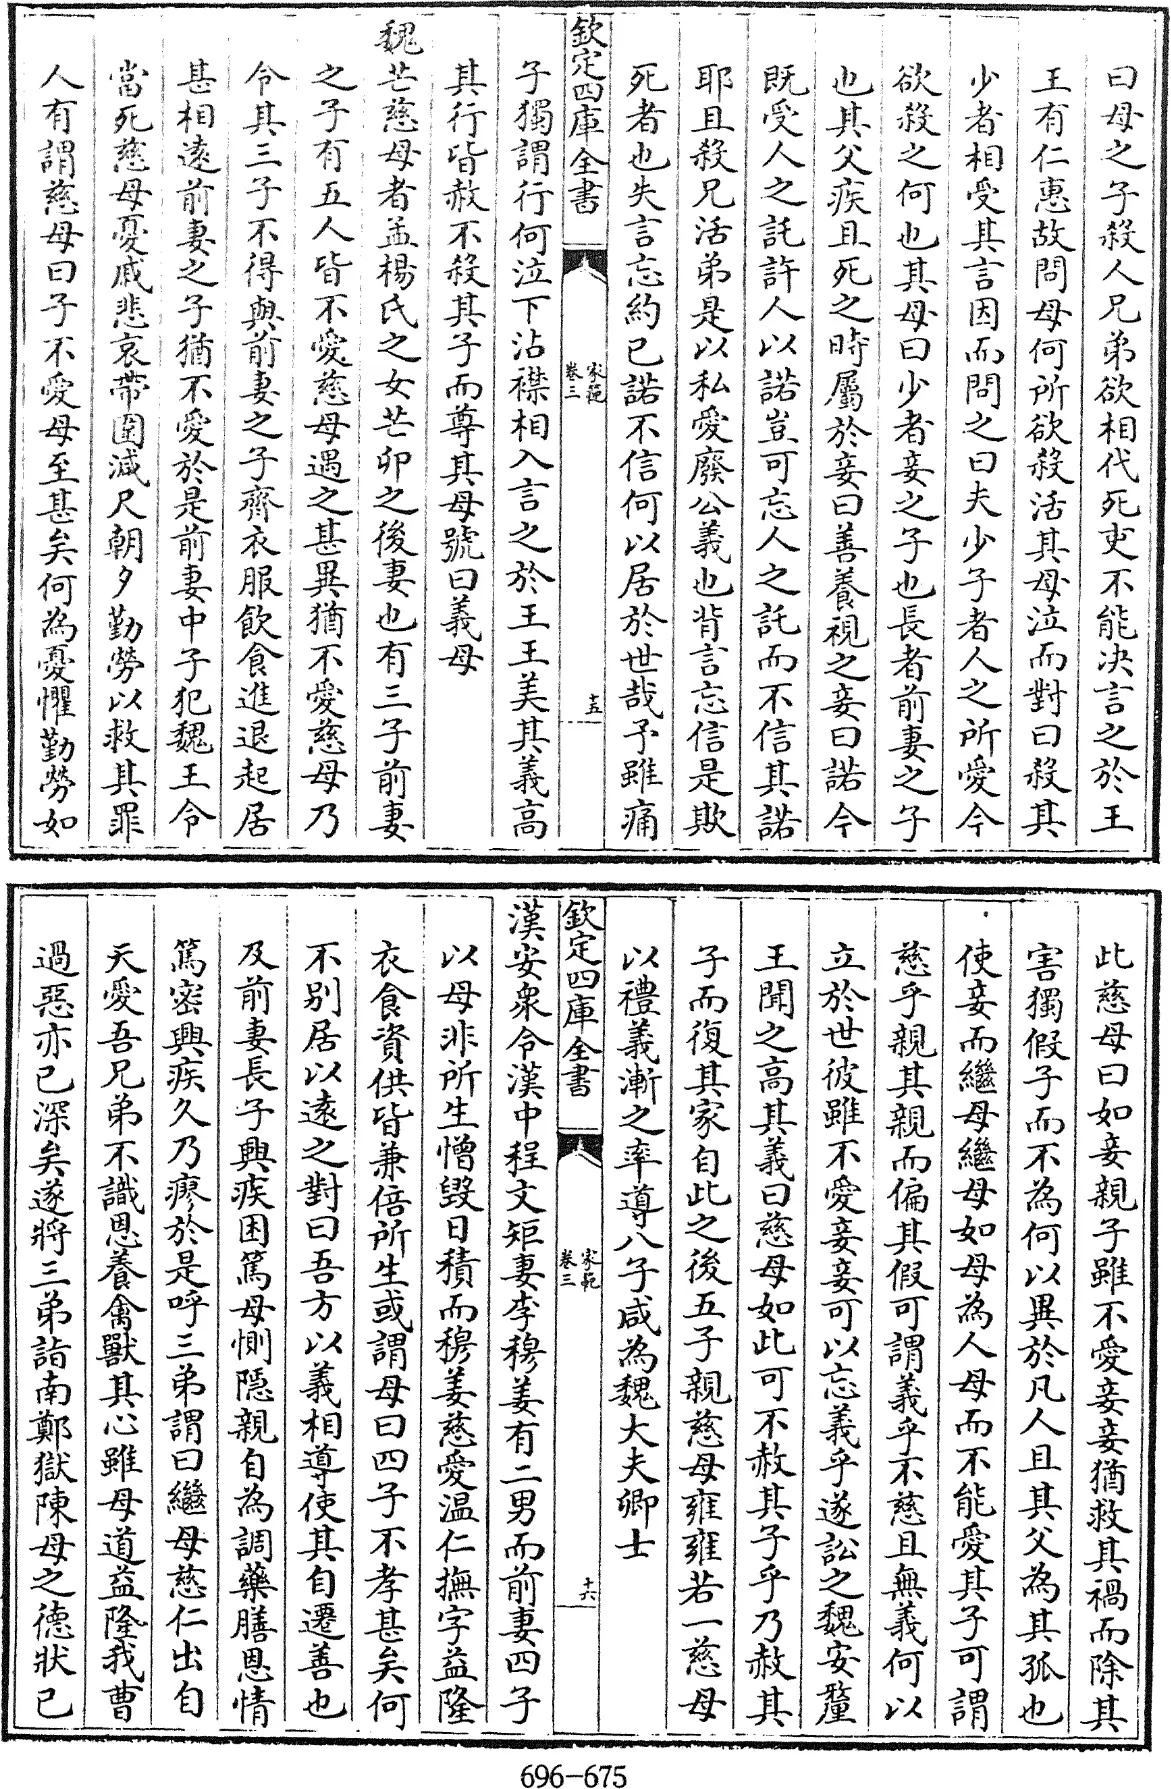 曰母之子殺人兄弟欲相代死吏不能决言之於王
王有仁惠故問母何所欲殺活其母泣而對曰殺其
少者相受其言因而問之曰夫少子者人之所愛今
欲殺之何也其母曰少者妾之子也長者前妻之子
也其父疾且死之時屬於妾曰善養視之妾曰諾今
既受人之託許人以諾豈可忘人之託而不信其諾
耶且殺兄活弟是以私愛廢公義也背言忘信是欺
死者也失言忘約已諾不信何以居於世哉予雖痛
欽定四庫全書
家範
卷三
十五
子獨謂行何泣下沾襟相入言之於王王美其義高
其行皆赦不殺其子而尊其母號曰義母
魏芒慈母者孟楊氏之女芒卯之後妻也有三子前妻
之子有五人皆不愛慈母遇之甚異猶不愛慈母乃
令其三子不得與前妻之子齊衣服飲食進退起居
甚相遠前妻之子猶不愛於是前妻中子犯魏王令
當死慈母憂戚悲哀帶圍減尺朝夕勤勞以救其罪
人有謂慈母曰子不愛母至甚矣何為憂懼勤勞如
此慈母曰如妾親子雖不愛妾妾猶救其禍而除其
害獨假子而不為何以異於凡人且其父為其孤也
使妾而繼母繼母如母為人母而不能愛其子可謂
慈乎親其親而偏其假可謂義乎不慈且無義何以
立於世彼雖不愛妾妾可以忘義乎遂訟之魏安釐
王聞之高其義曰慈母如此可不赦其子乎乃赦其
子而復其家自此之後五子親慈母雍雍若一慈母
以禮義漸之率導八子咸為魏大夫卿士
欽定四庫全書
家範
卷三
十六
漢安衆令漢中程文矩妻李穆姜有二男而前妻四子
以母非所生憎毀日積而穆姜慈愛温仁撫字益隆
衣食資供皆兼倍所生或謂母曰四子不孝甚矣何
不别居以遠之對曰吾方以義相導使其自遷善也
及前妻長子興疾困篤母惻隠親自為調藥膳恩情
篤密興疾久乃瘳於是呼三弟謂曰繼母慈仁出自
天愛吾兄弟不識恩養禽獸其心雖母道益隆我曹
過惡亦已深矣遂將三弟詣南鄭獄陳母之德狀已
696-675